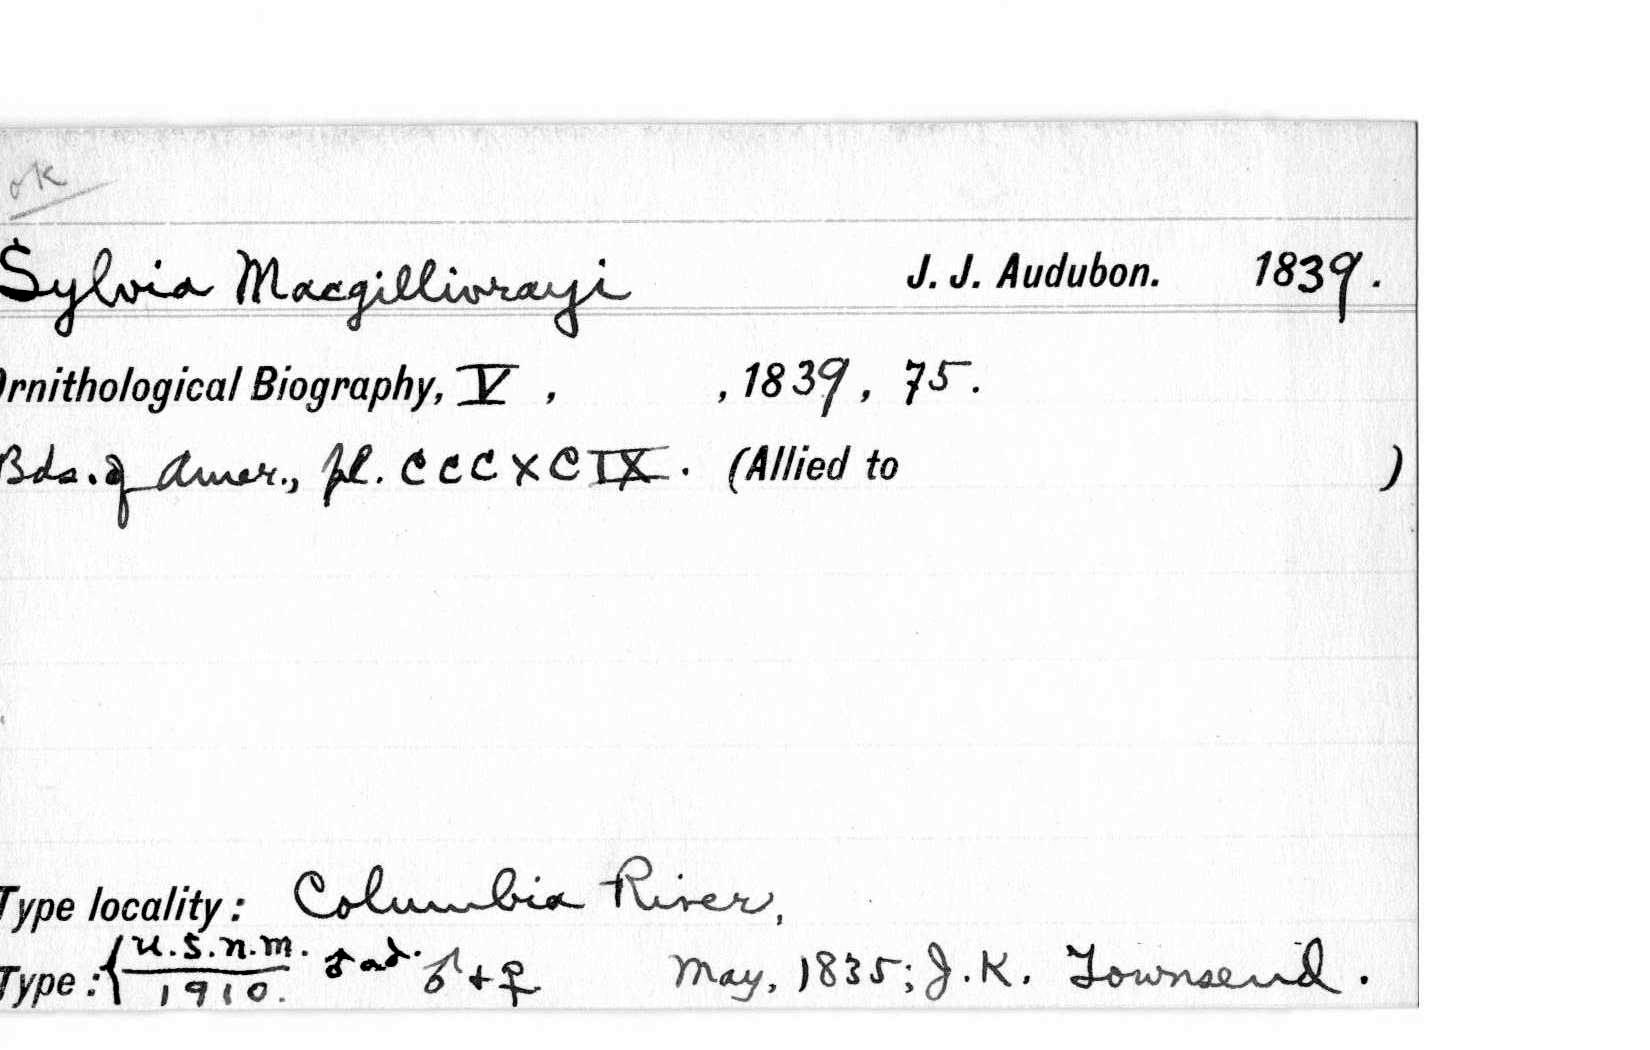 ok
Sylvia Macgillivrayi J. J. Audubon. 1839.
Ornithological Biography, V , , 1839, 75.
Bds. of Amer., pl. CCCXCIX. (Allied to )
Type locality: Columbia River,
Type: { U.S.N.M. ♂ ad. ♂ + ♀ May, 1835; J.K. Townsend.
1910.